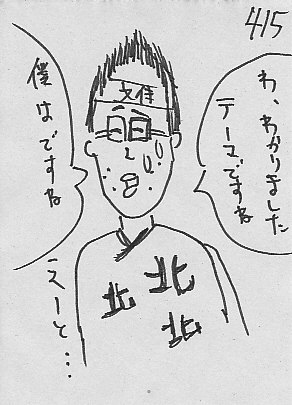 415
わ、わかりました
テーマですね
僕はですね
えーと…
北
北
北